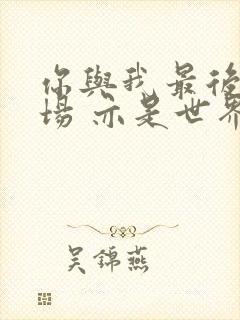 你與我 最後
場 亦是世界
吳錦燕